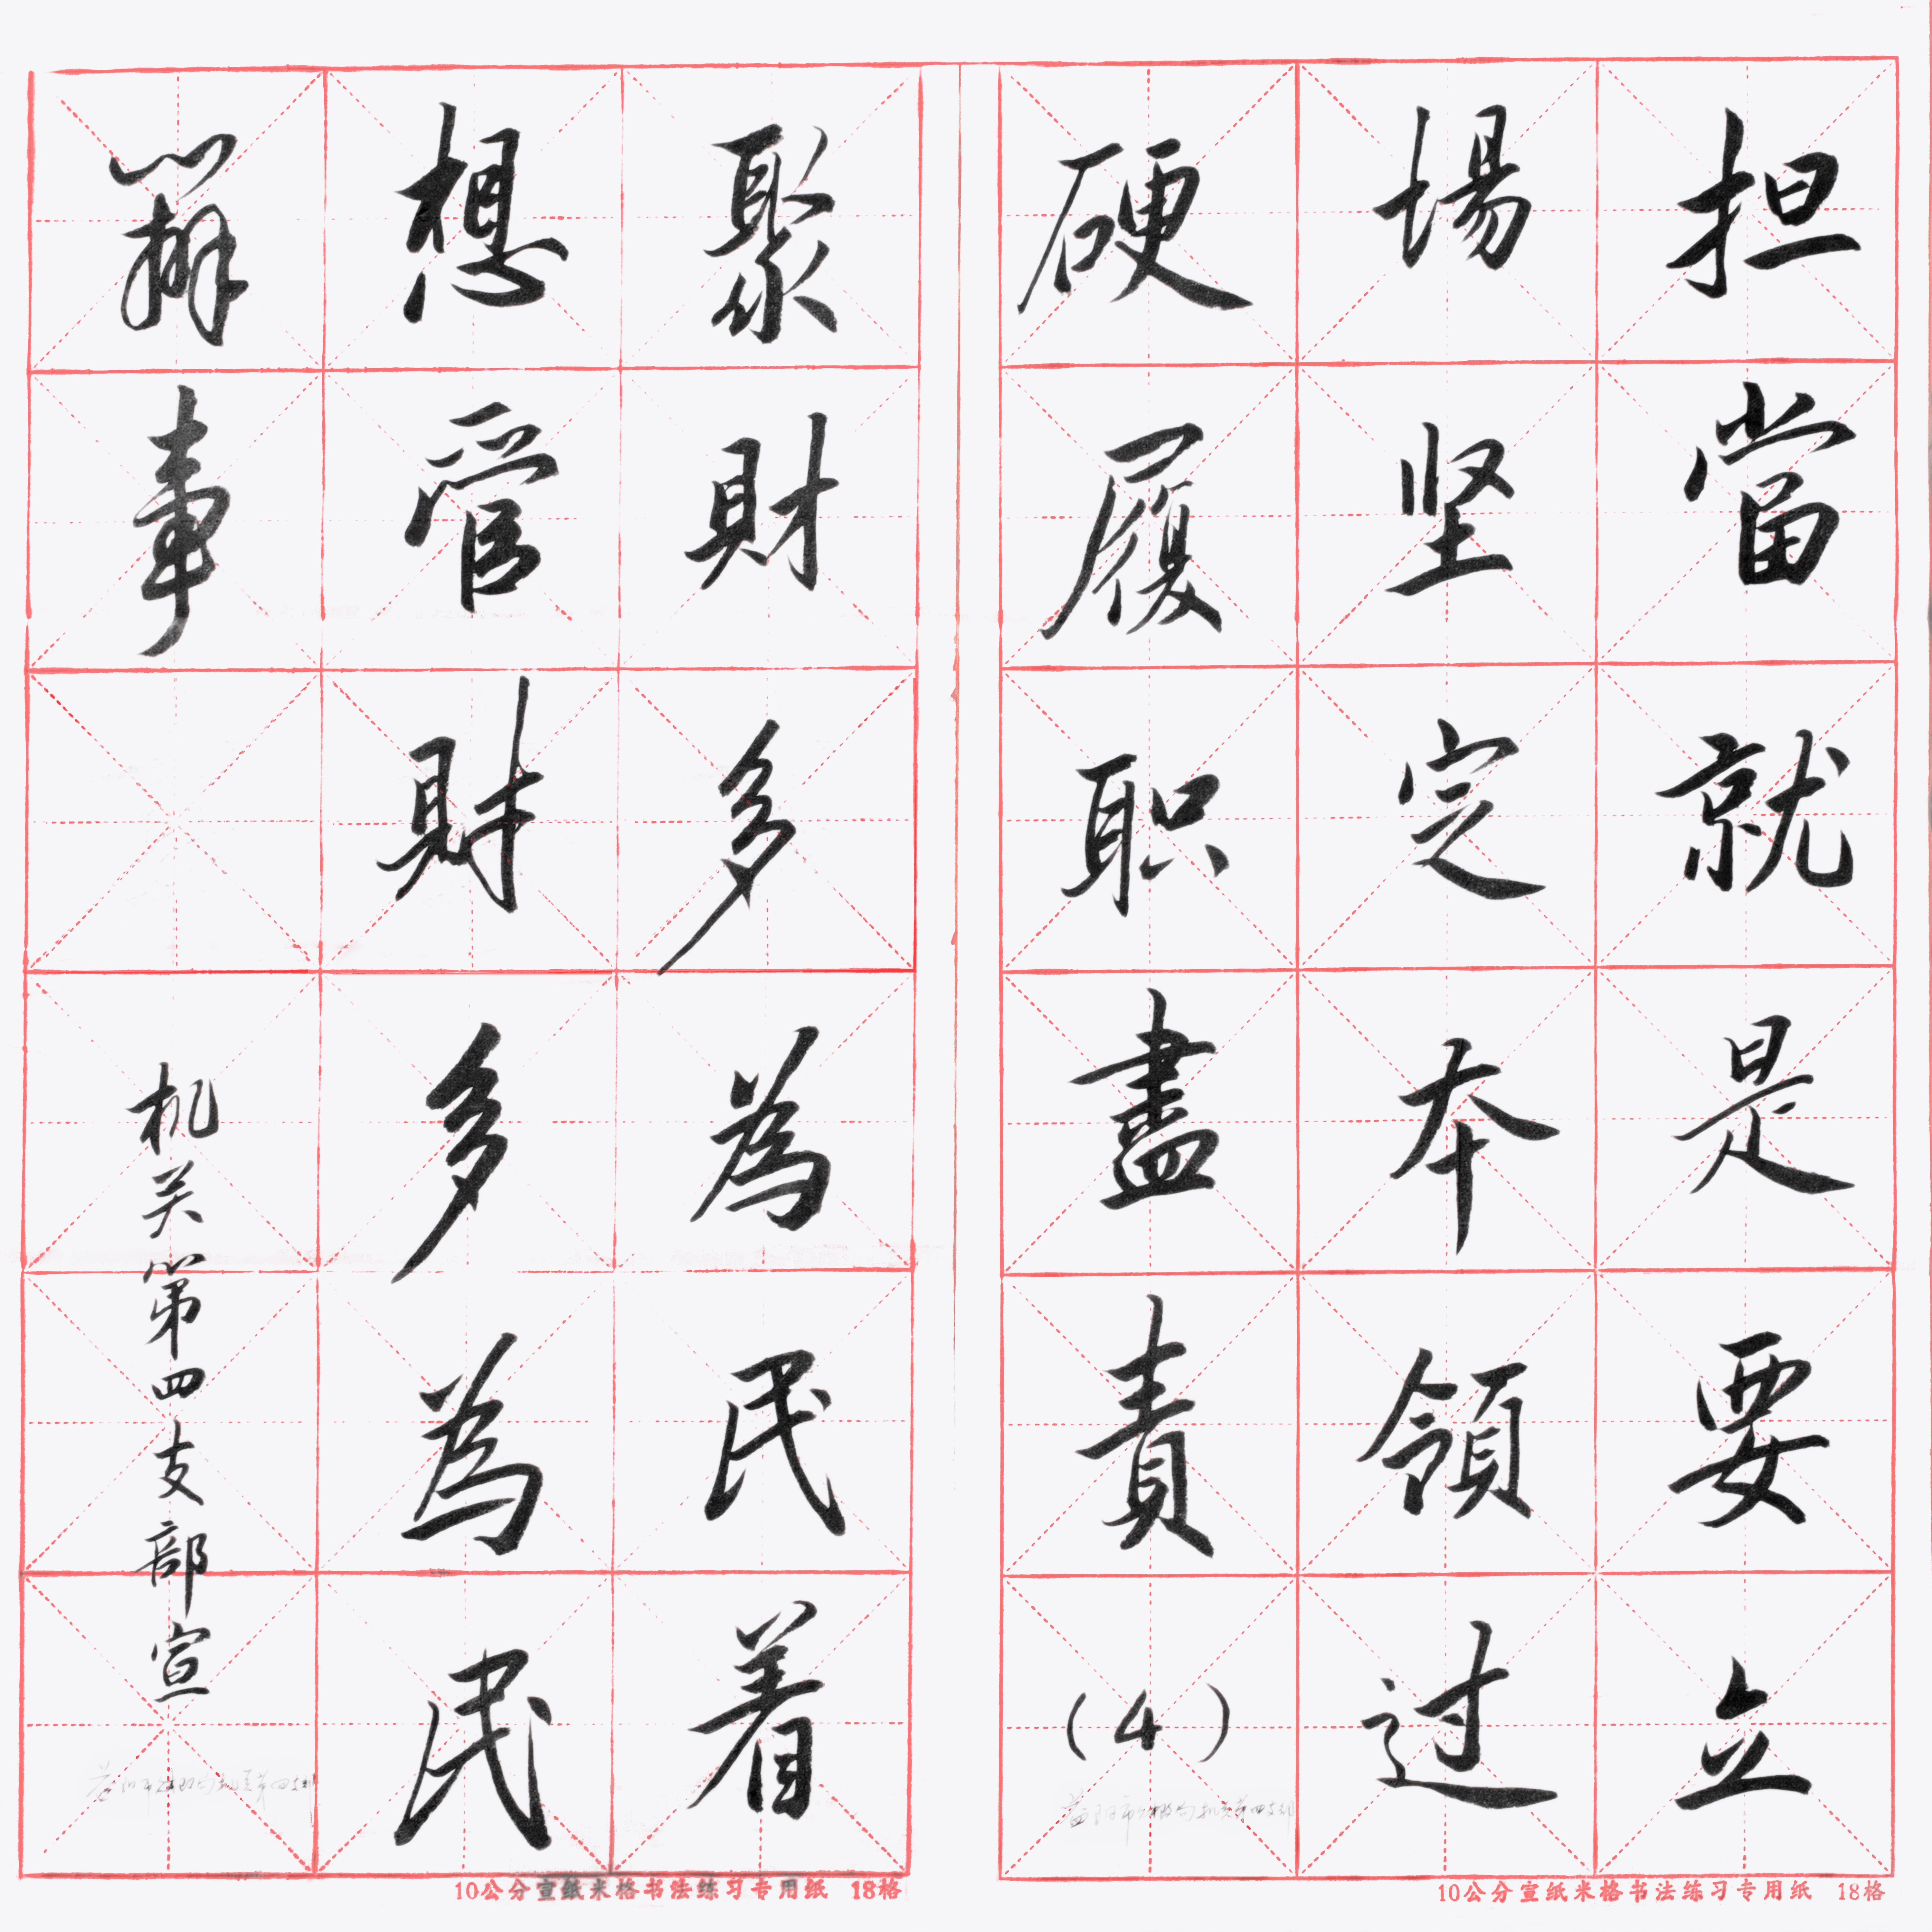 担當就是要立
場坚定本領过
硬履职盡責(4)
聚財多為民着
想管財多為民
辦事
机关第四支部宣
10公分宣纸米格书法练习专用纸 18格
10公分宣纸米格书法练习专用纸 18格